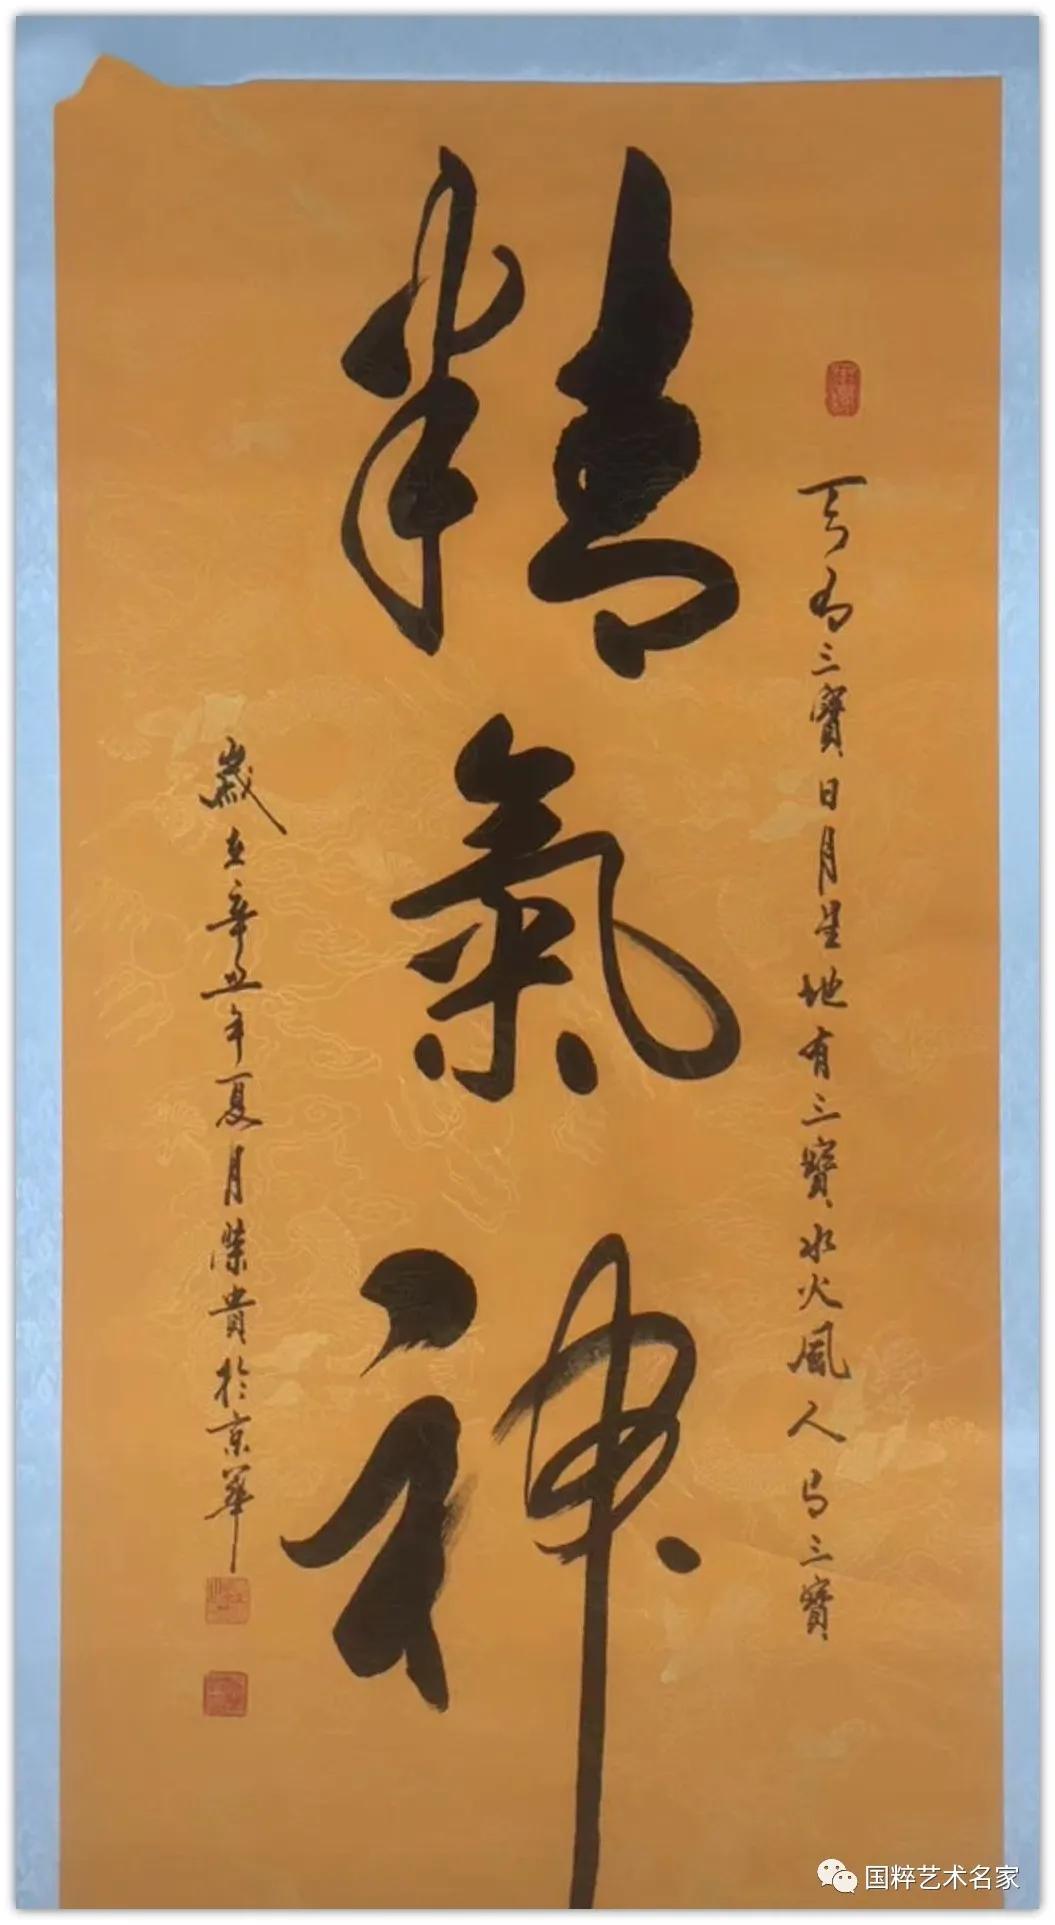 天有三寶日月星地有三寶水火風人有三寶
精氣神
歲在辛丑年夏月榮貴於京華
国粹艺术名家